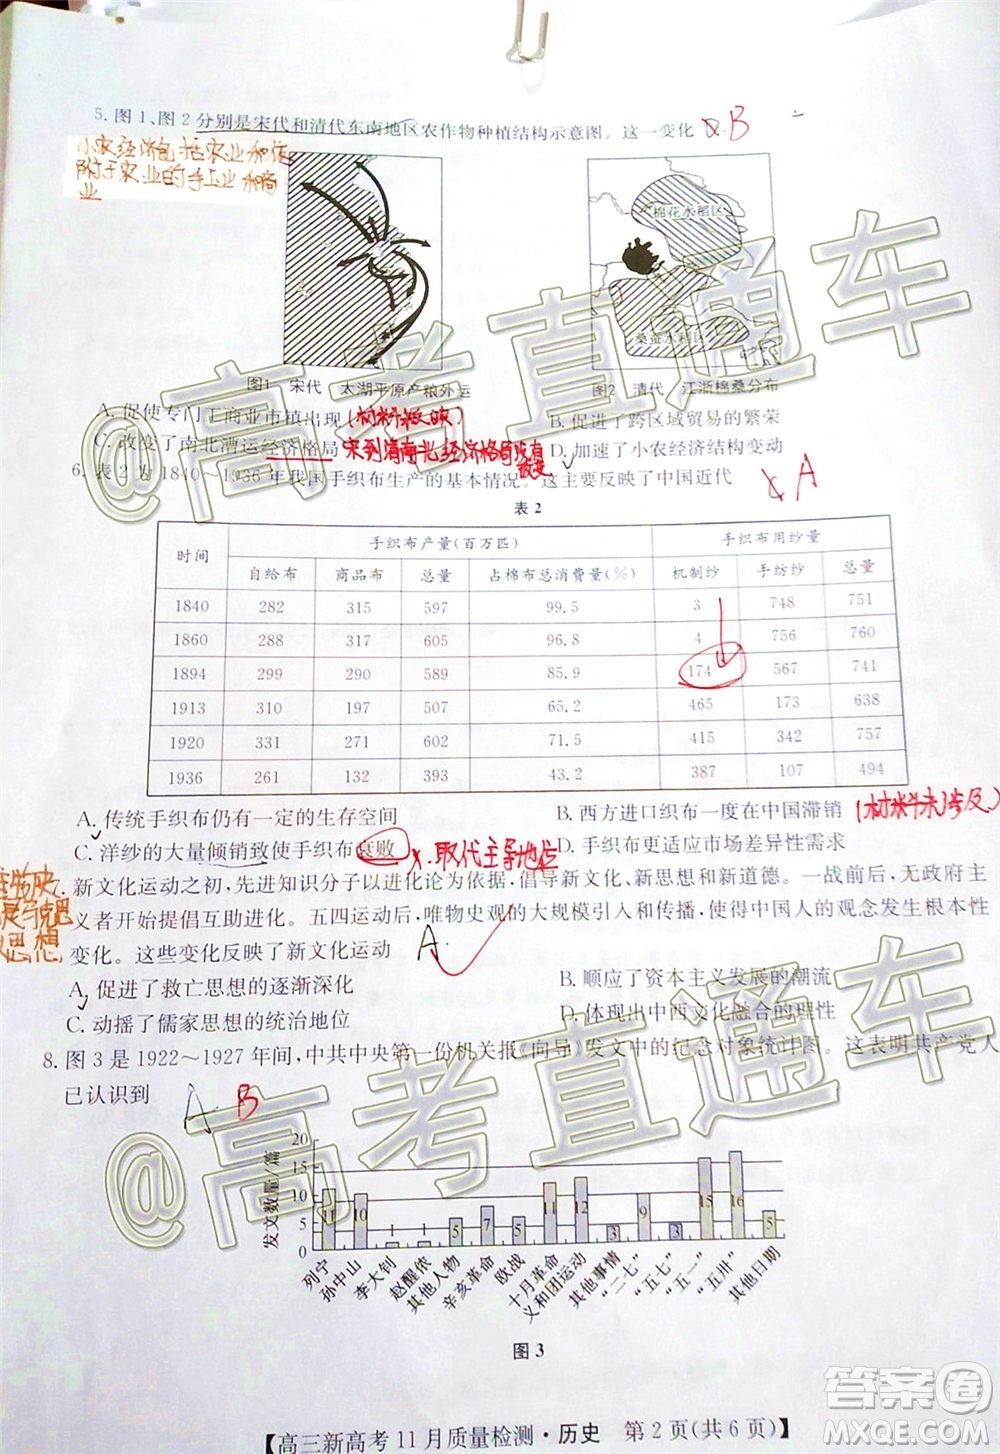 5. 图1、图2分别是宋代和清代东南地区农作物种植结构示意图。这一变化
B
小农经济包括农业和依
附于农业的手工业和商
业
棉花水稻区
桑蚕水稻区
图1 宋代 太湖平原产粮外运
图2 清代 江浙棉桑分布
A. 促使专门工商业市镇出现
(材料未反映)
B. 促进了跨区域贸易的繁荣
C. 改变了南北漕运经济格局
宋到清南北经济格局没有
改变
D. 加速了小农经济结构变动
6. 表2为1840～1936年我国手织布生产的基本情况。这主要反映了中国近代
A
表2
时间 手织布产量(百万匹) 手织布用纱量
自给布 商品布 总量 占棉布总消费量(%) 机制纱 手纺纱 总量
1840 282 315 597 99.5 3 748 751
1860 288 317 605 96.8 4 756 760
1894 299 290 589 85.9 174 567 741
1913 310 197 507 65.2 465 173 638
1920 331 271 602 71.5 415 342 757
1936 261 132 393 43.2 387 107 494
A. 传统手织布仍有一定的生存空间
B. 西方进口织布一度在中国滞销
(材料未涉及)
C. 洋纱的大量倾销致使手织布衰败
x. 取代主导地位
D. 手织布更适应市场差异性需求
唯物史
思想
7. 新文化运动之初,先进知识分子以进化论为依据,倡导新文化、新思想和新道德。一战前后,无政府主
义者开始提倡互助进化。五四运动后,唯物史观的大规模引入和传播,使得中国人的观念发生根本性
变化。这些变化反映了新文化运动
A
A. 促进了救亡思想的逐渐深化
B. 顺应了资本主义发展的潮流
C. 动摇了儒家思想的统治地位
D. 体现出中西文化融合的理性
8. 图3是1922～1927年间,中共中央第一份机关报《向导》发文中的纪念对象统计图。这表明共产党人
已认识到
A B
发文数量/篇
20
15
10
5
0
11 10 1 1 5 7 5 12 13 3 9 3 15 16 5
列宁 孙中山 李大钊 赵醒侬 其他人物 辛亥革命 欧战 十月革命 义和团运动 其他事情 “二七” “五七” “五一” “五卅” 其他日期
图3
【高三新高考11月质量检测·历史 第2页(共6页)】
@高考直通车
@高考直通车
答案圈
MXQE.COM